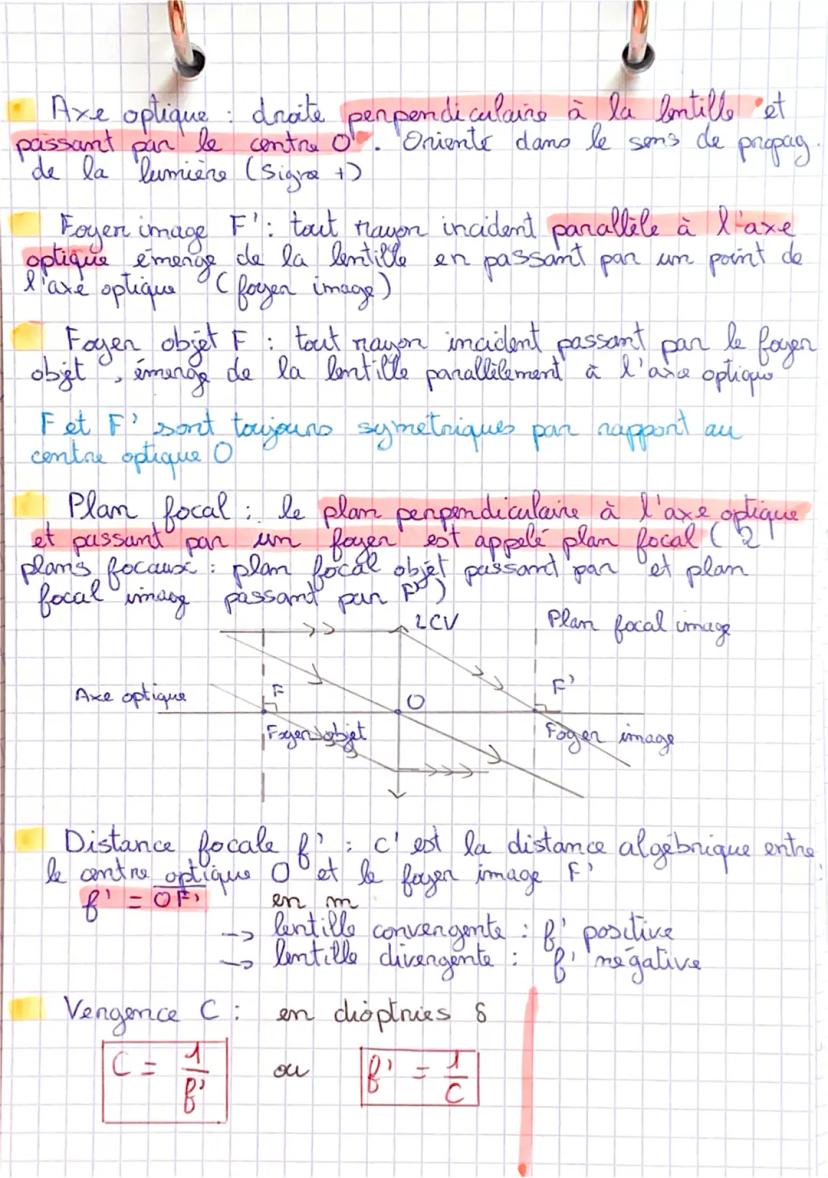 Axe optique : droite perpendiculaire à la lentille et
passant par le centre O. Oriente dans le sens de propag.
de la lumière (signe +)
Foyer image F' : tout rayon incident parallèle à l'axe
optique émerge de la lentille en passant par un point de
l'axe optique (foyer image)
Foyer objet F : tout rayon incident passant par le foyer
objet, émerge de la lentille parallèlement à l'axe optique
F et F' sont toujours symetriques par rapport au
centre optique O
Plan focal : le plan perpendiculaire à l'axe optique
et passant par un foyer est appelé plan focal (2
plans focaux : plan focal objet passant par et plan
focal image passant par F')
LCV
Plan focal image
Axe optique
F
O
F'
Foyer objet
Foyer image
Distance focale f' : c'est la distance algébrique entre
le centre optique O et le foyer image F'
f' = OF' en m
-> lentille convergente : f' positive
-> lentille divergente : f' négative
Vergence C : en dioptries δ
C = 1/f' ou f' = 1/C